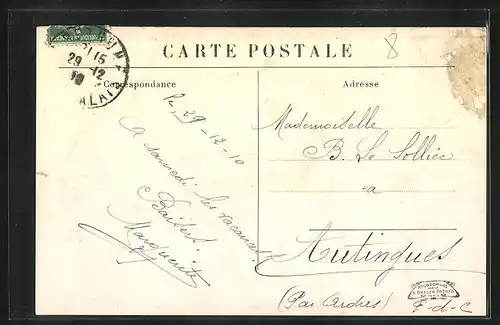 CARTE POSTALE
8
21 15
29 -12
10
CALAIS
Correspondance
Adresse
Le, 29-12-10
A samedi les vacances!
Baisers
Marguerite
Mademoiselle
B. Le Solliec
a
Autingues
(Par Ardres) P-d-C